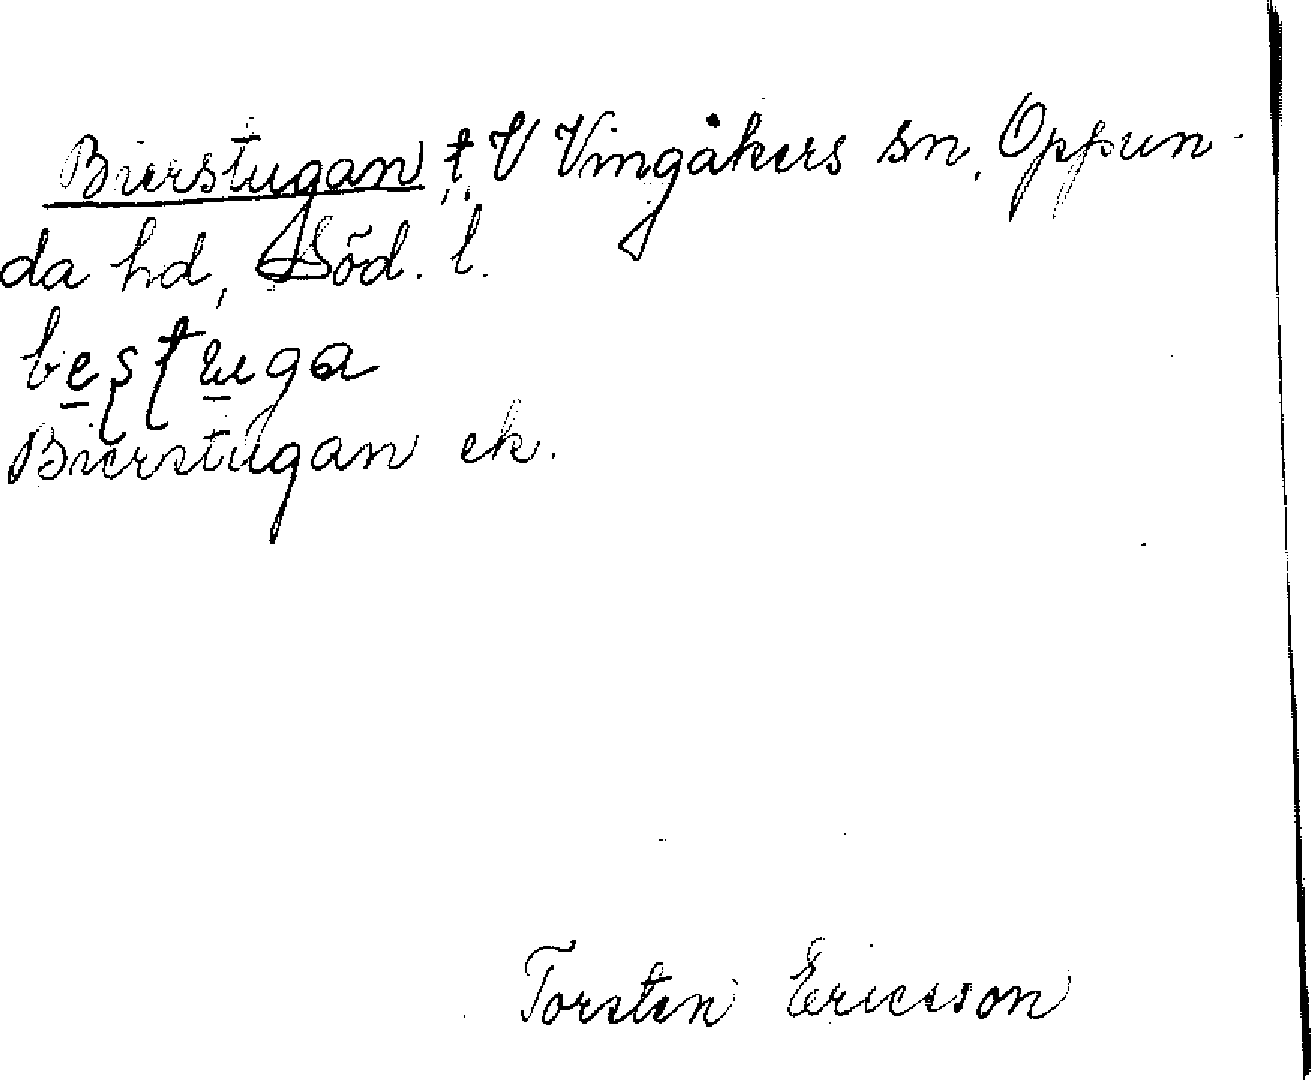 Bierstugan, t. V Vingåkers sn, Oppun-
da hd, Söd. l.
bes̩t̩uga
Bierstugan ek.
Torsten Ericsson